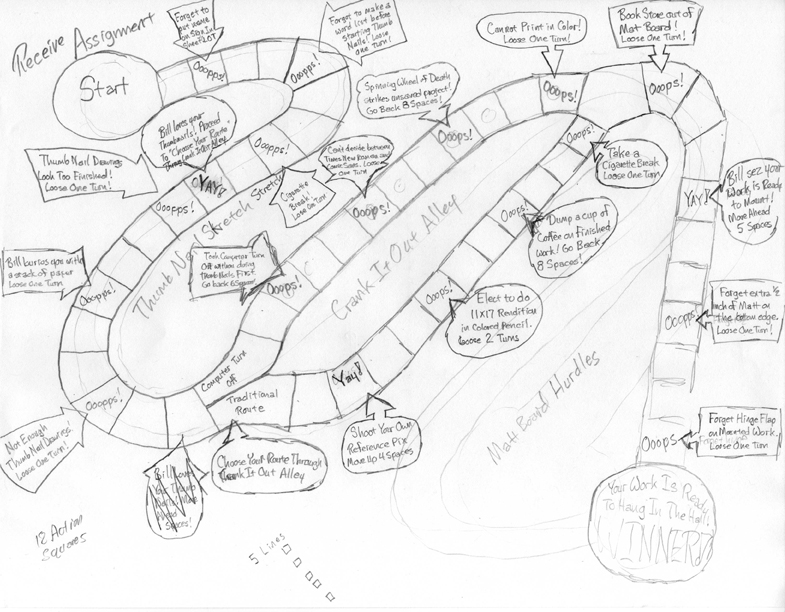 Receive Assignment
Start
Forget to
put name
on Sign In
Sheet
Ooopps!
Forgot to make a
word list before
starting Thumb
Nails! Loose
one turn!
Ooopps!
Bill loves your
Thumbnails! Proceed
To "Choose Your Route
Through
Alley
YAY!
Ooopps!
Thumb Nail Drawings
Look Too Finished!
Loose One Turn!
Ooopps!
Cigarette
Break!
Lose One Turn
Thumb Nail Stretch Stretch
Bill burns ops with
a stack of paper
Loose One Turn
Ooopps!
Not Enough
Thumb Nail Drawings.
Loose One Turn!
Ooopps!
Bill
Your Thumb
Spaces!
Computer Turn
Off
Traditional
Route
Choose Your Route Through
Crank It Out Alley
Took Computer Turn
Off without doing
Thumb Nails First
Go back 6 Spaces!
Ooops!
Can't decide between
Times New Roman and
Comic Sans. Loose
One Turn
Ooops!
Spinning Wheel of Death
strikes unsaved project!
Go Back 8 Spaces!
Ooops!
Cannot Print in Color!
Loose One Turn!
Ooops!
Book Store out of
Mat Board!
Loose One Turn!
Ooops!
Crank It Out Alley
Yay!
Shoot Your Own
Reference Pix
Move Up 4 Spaces
Ooops!
Elect to do
11x17 Rendition
in Colored Pencil.
Loose 2 Turns
Ooops!
Dump a cup of
Coffee on Finished
Work! Go Back
8 Spaces!
Ooops!
Take a
Cigarette Break
Loose One Turn
YAY!
Bill sez your
Work is Ready
to Mount!
Move Ahead
5 Spaces
Ooopps
Forget extra ½
inch of Matt on
the bottom edge.
Loose One Turn!
Ooops
Forget Hinge Flap
on Mounted Work.
Loose One Turn
Matt Board Hurdles
Your Work Is Ready
To Hang In The Hall!
WINNER!
12 Action
Squares
5 Lines